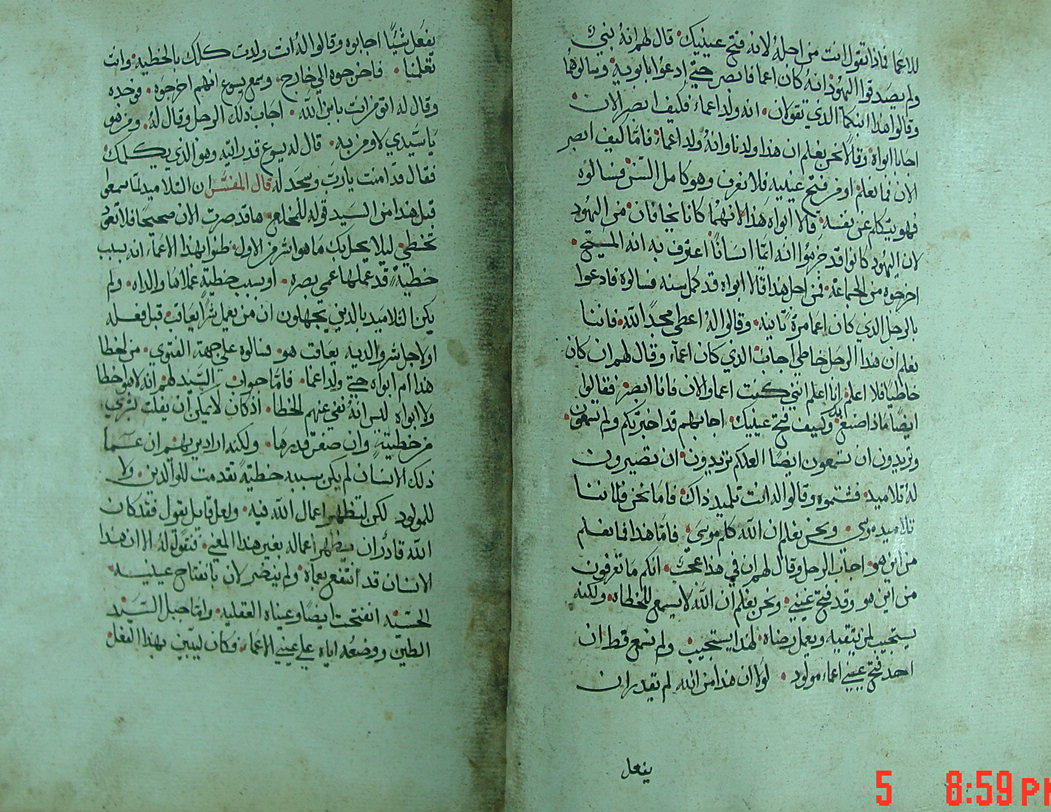 للاعما فاذا تقول انت من اجله لانه فتح عينيك • قال لهم انه نبي •
ولم يصدقوا اليهود انه كان اعما فابصر حتى ادعوا ابويه • وسالوهما
وقالوا هذا ابنكما الذي تقولان • انه ولد اعماء • فكيف ابصر الان
اجابا ابواه وقالا نحن نعلم ان هذا ولدنا وانه ولد اعما • فاما كيف ابصر
الان فما نعلم • او من فتح عينيه فلا نعرف وهو كامل السن فسالوه
فهو يتكلم عن نفسه • قالا ابواه هذا لانهما كانا يخافان من اليهود
لان اليهود كانوا قد جزموا انه ايما انسانا اعترف به انه المسيح •
اخرجوه من الجماعة • فمن اجل هذا قالا ابواه قد كمل سنه فسالوه فادعوا
بالرجل الذي كان اعما مرة ثانية • وقالوا له اعطي مجدا لله • فاننا
نعلم ان هذا الرجل خاطي اجاب الذي كان اعماء وقال لهم ان كان
خاطيا فلا اعلم انا اعلم انني كنت اعما والان فانا ابصر • فقالوا
ايضا ماذا صنع بك وكيف فتح عينيك • اجابهم قد اخبرتكم ولم تسمعون •
وتريدون ان تسمعون ايضا العلكم تريدون • ان تصيرون
له تلاميد • فشتموه وقالوا له انت تلميد داك • فاما نحن فاننا
تلاميد موسى • ونحن نعلم ان الله كلم موسى • فاما هذا فما نعلم
من اين هو • اجاب الرجل وقال لهم ان في هذا عجب • انكم ما تعرفون
من اين هو وقد فتح عيني • ونحن نعلم ان الله لا يسمع للخطاه • ولكنه
يستجيب لمن يتقيه ويعمل رضاه • لهذا يستجيب ولم نسمع قط ان
احد فتح عيني اعماء مولود • لولا ان هذا من الله لم يقدر ان
يفعل
يفعل شيا اجابوه وقالوا له انت ولدت كلك بالخطية • وانت
تعلمنا • فاخرجوه الى خارج • وسمع يسوع انهم اخرجوه • فوجده
وقال له اتومن انت بابن الله • اجاب ذلك الرجل وقال له • ومن هو
يا سيدي لاومن به • قال له يسوع قد رايته وهو الذي يكلمك •
فقال قد امنت يارب وسجد له قال المفسر ان التلاميد لما سمعوا
قبل هذا من السيد قوله للمخلع • ها قد صرت الان صحيحا فلا تعود
تخطي ليلا يحل بك ما هو اشر من الاول • ظنوا بهذا الاعماء انه بسبب
خطية قد عملها عمي بصره • او بسبب خطية عملاها والداه • ولم
يكن التلاميد بالذين يجهلون ان من يعمل شرا يعاقب قبل فعله
او لاجل شر والديه يعاقب هو • فسالوه على جهة الفتوى • من اخطا
هذا ام ابواه حتى ولد اعما • فاما جواب السيد لهم انه لا هو اخطا
ولا ابواه ليس انه نفى عنهم الخطا • اذ كان لا يمكن ان يفلت بشري
من خطية وان صغر قدرها • ولكنه اراد يريهم ان عما
ذلك الانسان لم يكن سببه خطية تقدمت للوالدين ولا
للمولود لكن لتظهر اعمال الله فيه • ولعل قايل يقول فقد كان
الله قادر ان يظهر اعماله بغير هذا المعنى • فنقول له الا ان هذا
الانسان قد انتفع بعماه • ولم يتضر لان بانفتاح عينيه
الحسيه انفتحت ايضا وعيناه العقليه • واما جبل السيد
الطين ووضعه اياه على عيني الاعماء • فكان ليبين بهذا الفعل
5 8:59 PM